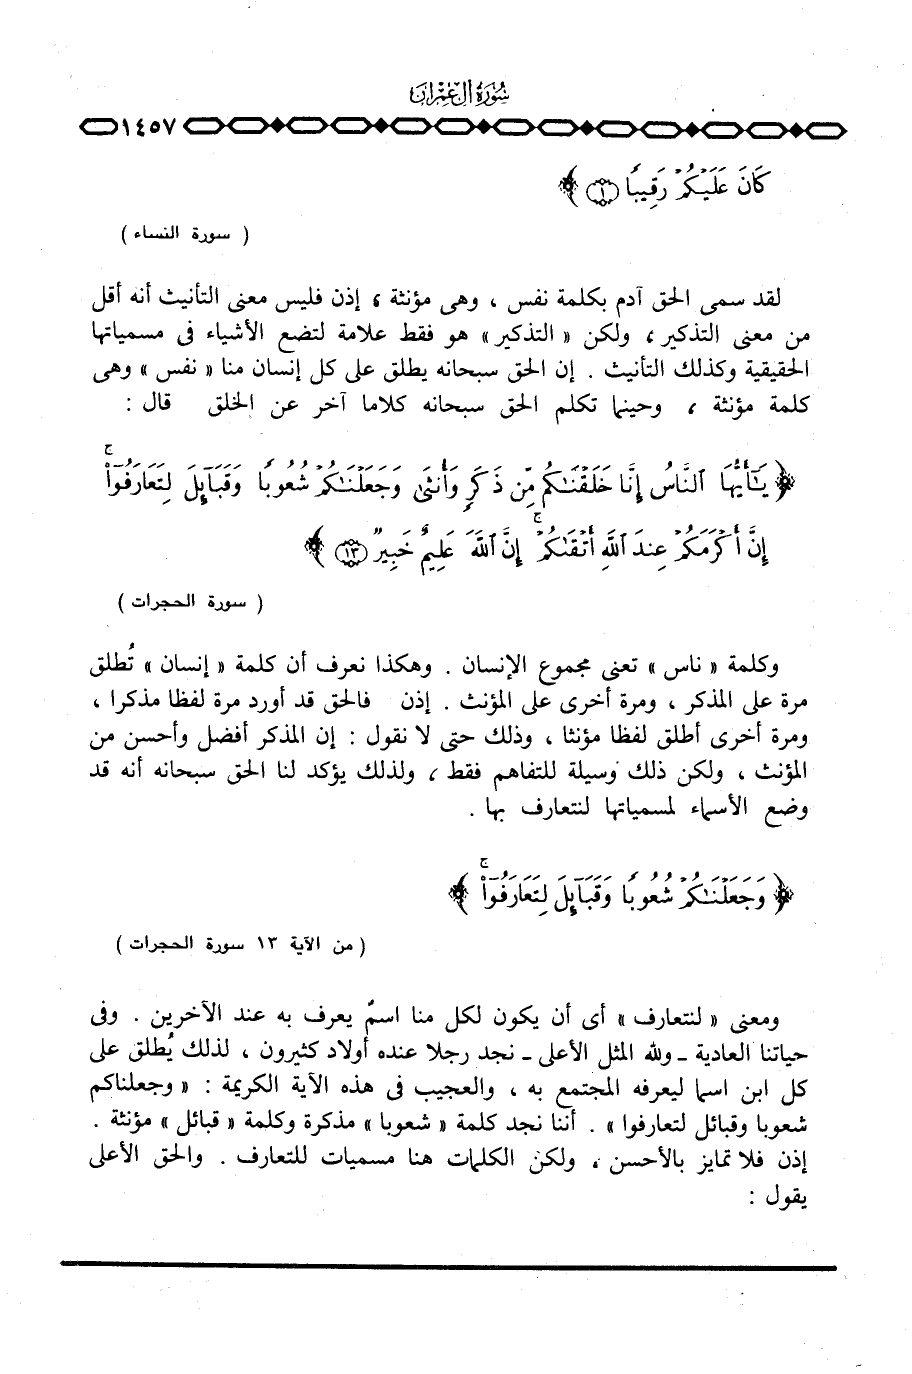 سورة آل عمران
١٤٥٧
كَانَ عَلَيْكُمْ رَقِيبًا ﴿١﴾ ﴾
( سورة النساء )
لقد سمى الحق آدم بكلمة نفس ، وهى مؤنثة ؛ إذن فليس معنى التأنيث أنه أقل
من معنى التذكير ، ولكن « التذكير » هو فقط علامة لتضع الأشياء فى مسمياتها
الحقيقية وكذلك التأنيث . إن الحق سبحانه يطلق على كل إنسان منا « نفس » وهى
كلمة مؤنثة ، وحينما تكلم الحق سبحانه كلاما آخر عن الخلق قال :
﴿ يَـٰٓأَيُّهَا ٱلنَّاسُ إِنَّا خَلَقْنَـٰكُم مِّن ذَكَرٍ وَأُنثَىٰ وَجَعَلْنَـٰكُمْ شُعُوبًا وَقَبَآئِلَ لِتَعَارَفُوٓا۟ ۚ
إِنَّ أَكْرَمَكُمْ عِندَ ٱللَّهِ أَتْقَىٰكُمْ ۚ إِنَّ ٱللَّهَ عَلِيمٌ خَبِيرٌ ﴿١٣﴾ ﴾
( سورة الحجرات )
وكلمة « ناس » تعنى مجموع الإنسان . وهكذا نعرف أن كلمة « إنسان » تُطلق
مرة على المذكر ، ومرة أخرى على المؤنث . إذن فالحق قد أورد مرة لفظا مذكرا ،
ومرة أخرى أطلق لفظا مؤنثا ، وذلك حتى لا نقول : إن المذكر أفضل وأحسن من
المؤنث ، ولكن ذلك وسيلة للتفاهم فقط ، ولذلك يؤكد لنا الحق سبحانه أنه قد
وضع الأسماء لمسمياتها لنتعارف بها .
﴿ وَجَعَلْنَـٰكُمْ شُعُوبًا وَقَبَآئِلَ لِتَعَارَفُوٓا۟ ۚ ﴾
( من الآية ١٣ سورة الحجرات )
ومعنى « لنتعارف » أى أن يكون لكل منا اسمٌ يعرف به عند الآخرين . وفى
حياتنا العادية ـ ولله المثل الأعلى ـ نجد رجلا عنده أولاد كثيرون ، لذلك يُطلق على
كل ابن اسما ليعرفه المجتمع به ، والعجيب فى هذه الآية الكريمة : « وجعلناكم
شعوبا وقبائل لتعارفوا » . أننا نجد كلمة « شعوبا » مذكرة وكلمة « قبائل » مؤنثة .
إذن فلا تمايز بالأحسن ، ولكن الكلمات هنا مسميات للتعارف . والحق الأعلى
يقول :